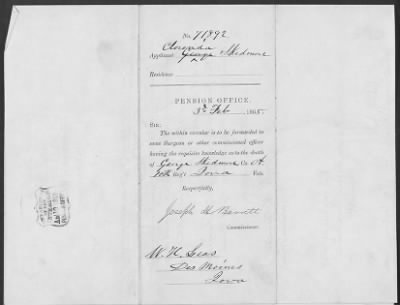 No. 71892
Clorinda
Applicant George Skidmore
Residence
PENSION OFFICE,
3d Feb 1865.
SIR:
The within circular is to be forwarded to
some Surgeon or other commissioned officer
having the requisite knowledge as to the death
of George Skidmore Co. A.
Reg't Iowa Vols.
Respectfully,
Joseph H Barrett
Commissioner.
W. H. Leas
Des Moines
Iowa